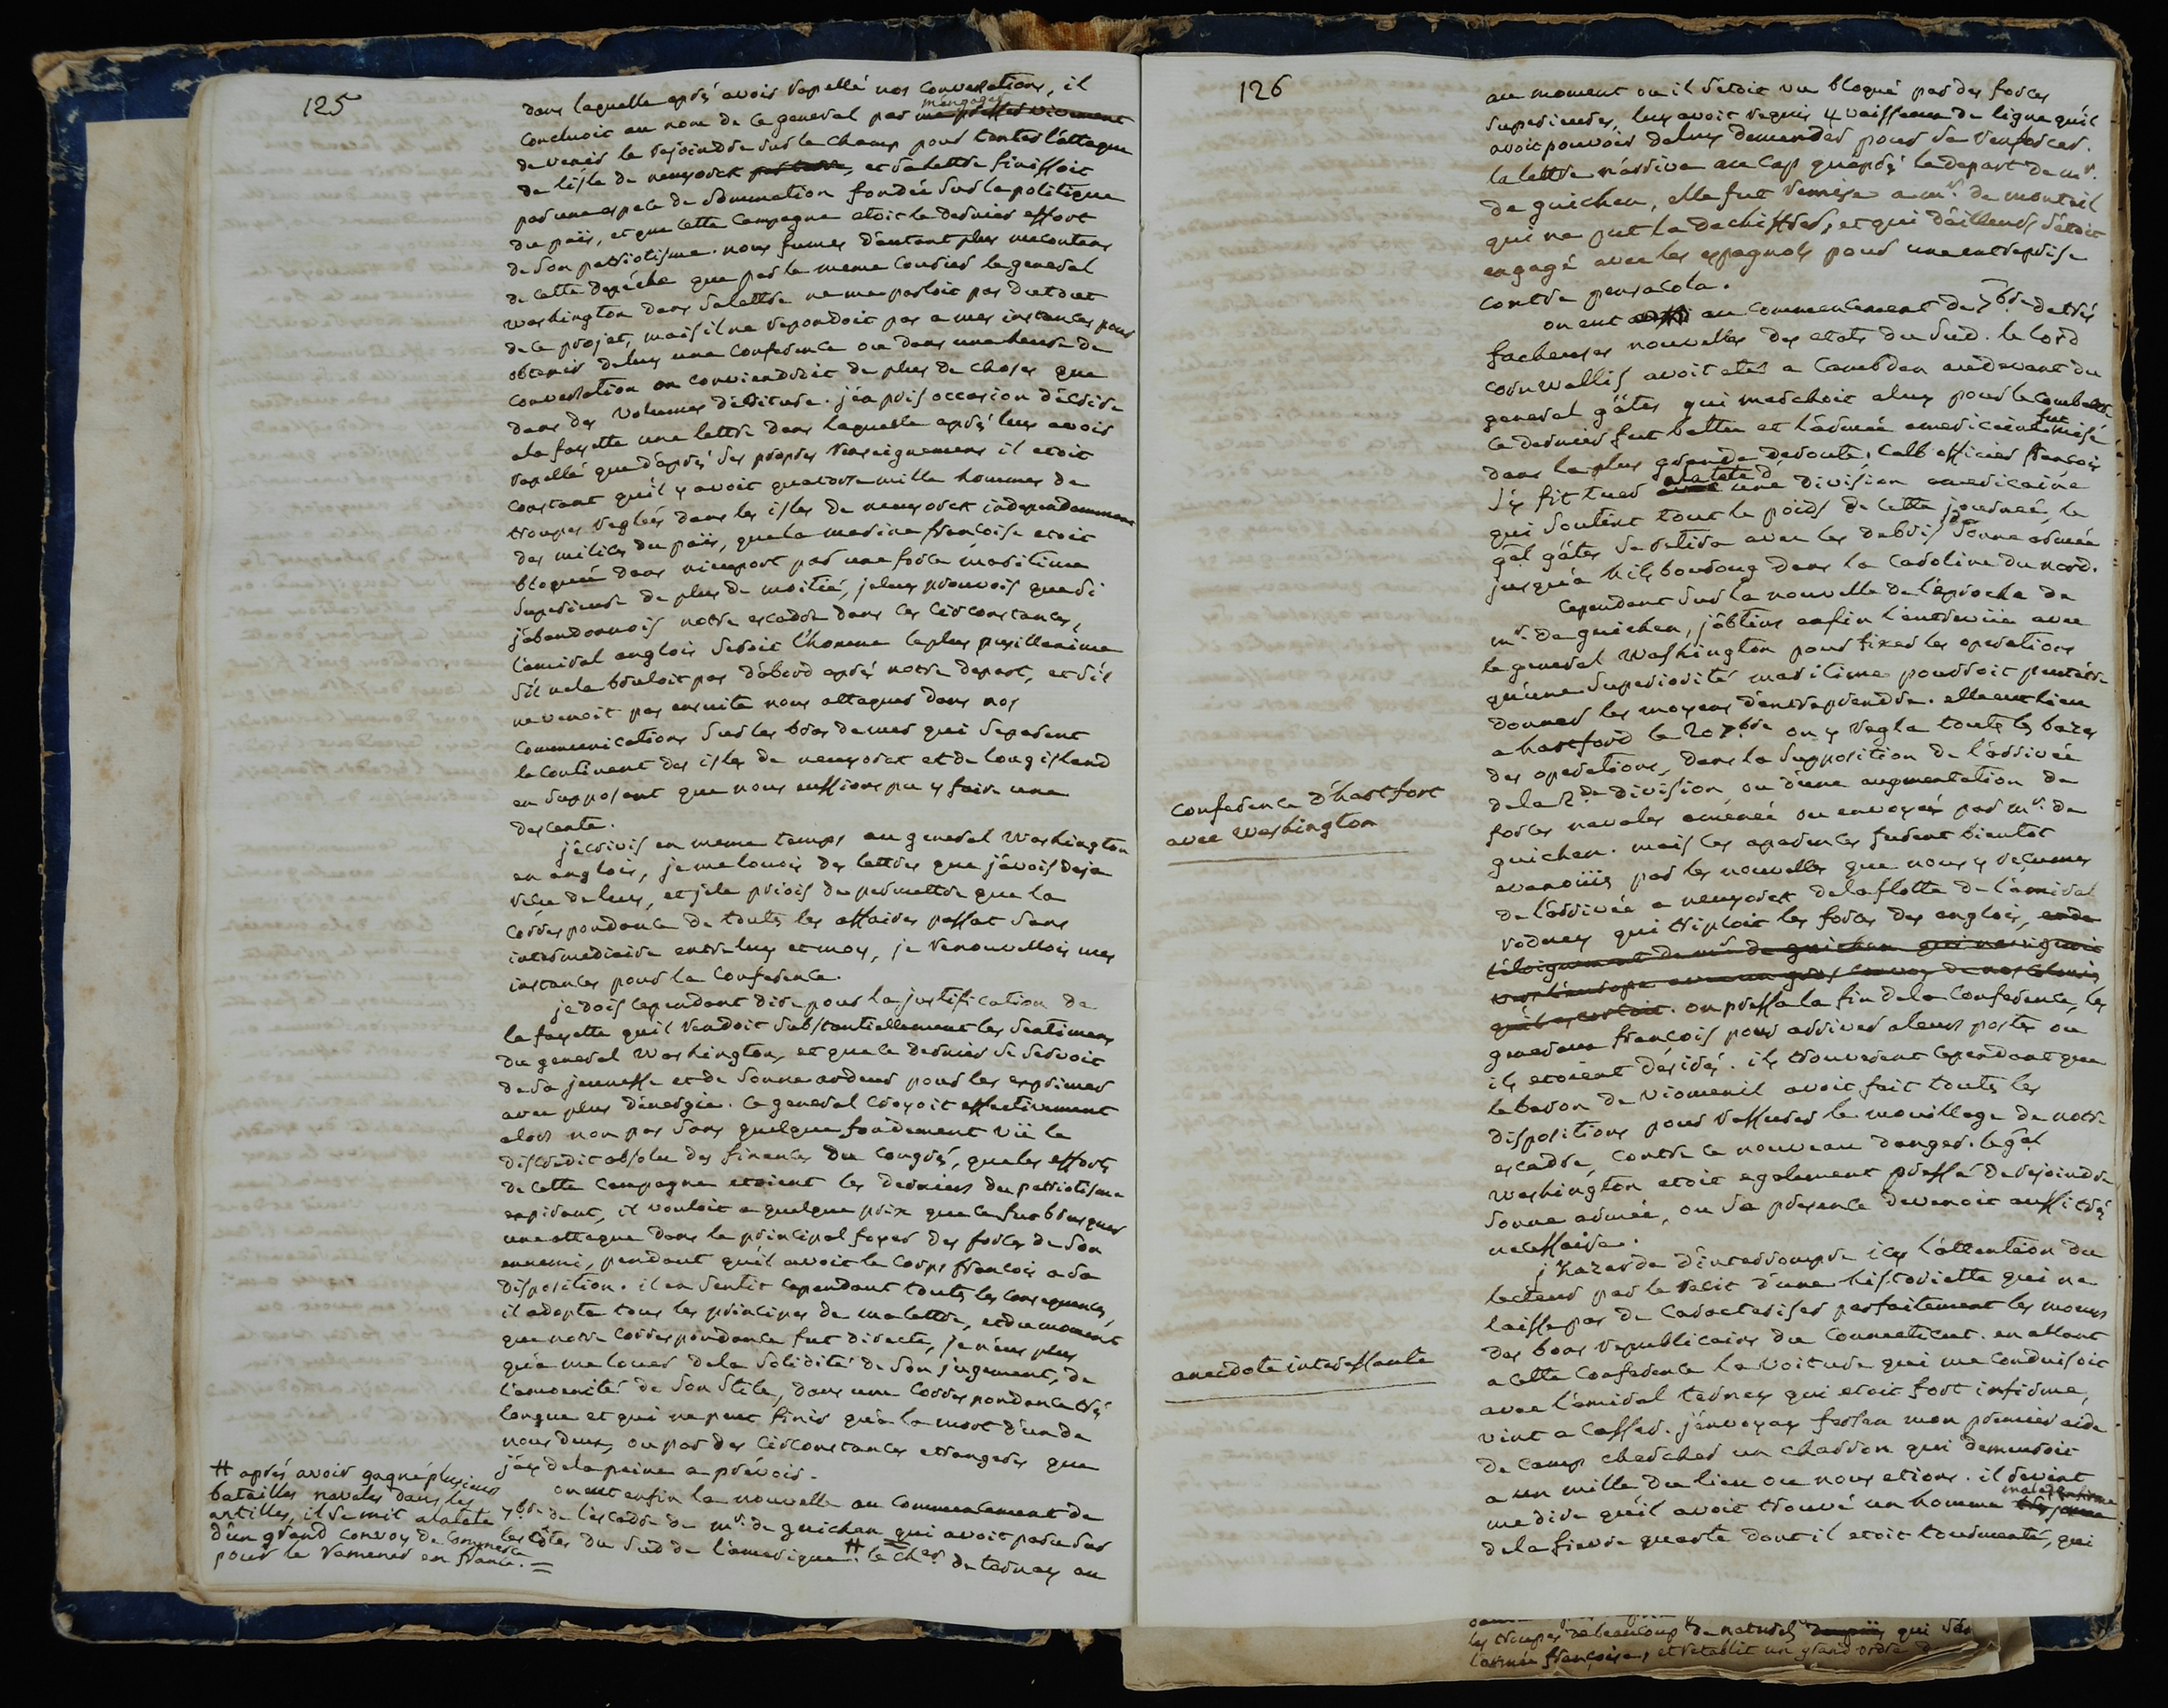 125
dans laquelle aprés avoir rapellé nos conversations, il
concluoit au nom de ce general par m'engager ma presser vivement
de venir le rejoindre sur le champ pour tenter l'attaque
de l'isle de newyorck, et sa lettre finissoit
par une espece de sommation fondée sur la politique
du païs, et que cette campagne etoit le dernier effort
de son patriotisme. nous fumes d'autant plus mecontens
de cette depéche que par le meme courier le general
Washington dans sa lettre ne me parloit pas du tout
de ce projet, mais il ne repondoit pas a mes instances pour
obtenir de luy une conference ou dans une heure de
conversation on conviendroit de plus de choses que
dans des volumes d'écriture. j'en pris occasion d'écrire
a la fayette une lettre dans laquelle aprés luy avoir
rapellé que d'aprés ses propres renseignemens il etoit
constant qu'il y avoit quatorze mille hommes de
troupes reglées dans les isles de newyorck independamment
des milices du païs, que la marine françoise etoit
bloquée dans nieuport par une force maritime
superieure de plus de moitié, je luy prouvois que si
j'abandonnois notre escadre dans ces circonstances,
l'amiral anglois seroit l'homme le plus pusillanime
s'il ne la bruloit pas d'abord aprés notre depart, et s'il
ne venoit pas ensuite nous attaquer dans nos
communications sur les bras de mer qui separent
le continent des isles de newyorck et de longisland
en supposant que nous eussions pu y faire une
descente.
j'écrivis en meme temps au general Washington
en anglois, je me louois des lettres que j'avois deja
reçu de luy, et je le priois de permettre que la
correspondance de touts les affaires passat sans
intermediaire entre luy et moy, je renouvellois mes
instances pour la conference.
je dois cependant dire pour la justification de
la fayette qu'il rendoit substantiellement les sentimens
du general Washington, et que ce dernier se servoit
de sa jeunesse et de sonne ardeur pour les exprimer
avec plus d'énergie. ce general croyoit effectivement
alors non pas sans quelque fondement vü le
discredit absolu des finances du congrés, que les efforts
de cette campagne etoient les derniers du patriotisme
expirant, il vouloit a quelque prix que ce fut brusquer
une attaque dans le principal foyer des forces de son
ennemi, pendant qu'il avoit le corps françois a sa
disposition. il en sentit cependant touts les consequences,
il adopta tous les principes de ma lettre, et du moment
que notre correspondance fut directe, je n'eus plus
qu'a me louer de la solidité de son jugement, de
l'amoenité de son stile, dans une correspondance trés
longue et qui ne peut finir qu'a la mort d'un de
nous deux, ou par des circonstances etrangeres que
j'ay de la peine a prévoir.
on eut enfin la nouvelle au commencement de
7bre de l'escadre de mr. de guichen qui avoit paru sur
les côtes du sud de l'amerique # le cher. de ternay au
# aprés avoir gagné plusieurs
batailles navales dans les
antilles, il se mit a la tete
d'un grand convoy de commerce
pour le ramener en france. =
126
au moment ou il s'etoit vu bloqué par des forces
superieures, luy avoit requis 4 vaisseaux de ligne qu'il
avoit pouvoir de luy demander pour se renforcer.
la lettre n'arriva au Cap qu'aprés le depart de mr.
de guichen, elle fut remise a mr. de monteil
qui ne put la dechiffrer, et qui d'ailleurs s'etoit
engagé avec les espagnols pour une entreprise
contre pensacola.
on eut aussi au commencement de 7bre de trés
facheuses nouvelles des etats du sud. le lord
cornwallis avoit eté a Cambden audevant du
general gâtes qui marchoit a luy pour le combattre
ce dernier fut battu et l'armée americaine fut misé
dans la plus grande deroute, Calb officier françois
s'y fit tuer a la tete d' avec une division americaine
qui soutint tout le poids de cette journée, le
gal gâtes se retira avec les debris de sonne armée
jusqu'a hilsboroug dans la Caroline du nord.
Cependant sur la nouvelle de l'aproche de
mr. de guichen, j'obtins enfin l'entrevüe avec
le general Washington pour fixer les operations
qu'une superiorité maritime pourroit peutétre
donner les moyens d'entreprendre. elle eut lieu
a hartford le 20 7bre on y regla toute les bazes
des operations, dans la supposition de l'arrivée
de la 2de division ou d'une augmentation de
forces navales amenée ou envoyée par mr. de
guichen. mais ces aparences furent bientot
evanoüis par les nouvelles que nous y reçumes
de l'arrivée a newyorck de la flotte de l'amiral
rodney qui triploit les forces des anglois, et de
l'éloignement de mr de guichen qui navigeoit
vers l'europe avec un gros convoy de nos colonies
qu'il escortoit. on pressa la fin de la conference, les
generaux françois pour arriver a leurs postes ou
ils etoient désirés. ils trouverent cependant que
le baron de viomenil avoit fait touts les
dispositions pour rassurer le mouillage de notre
escadre, contre ce nouveau danger. le gal
Washington etoit egalement pressé de rejoindre
sonne armée, ou sa presence devenoit aussi trés
necessaire.
j'hazarde d'interrompre icy l'attention du
lecteur par le recit d'une historiette qui ne
laisse pas de caracteriser parfaitement les moeurs
des bons republicains du Connecticut. en allant
a cette conference la voiture qui me conduisoit
avec l'amiral ternay qui etoit fort infirme,
vint a casser. j'envoyay fersen mon premier aide
de camp chercher un charron qui demeuroit
a un mille du lieu ou nous etions. il revint
me dire qu'il avoit trouvé un homme malade
de la fievre quarte dont il etoit tourmenté, qui
conference d'hartfort
avec Washington
anecdote interessante
les troupes de beaucoup de naturels du païs qui
l'armée françoise, et retablit un grand ordre d